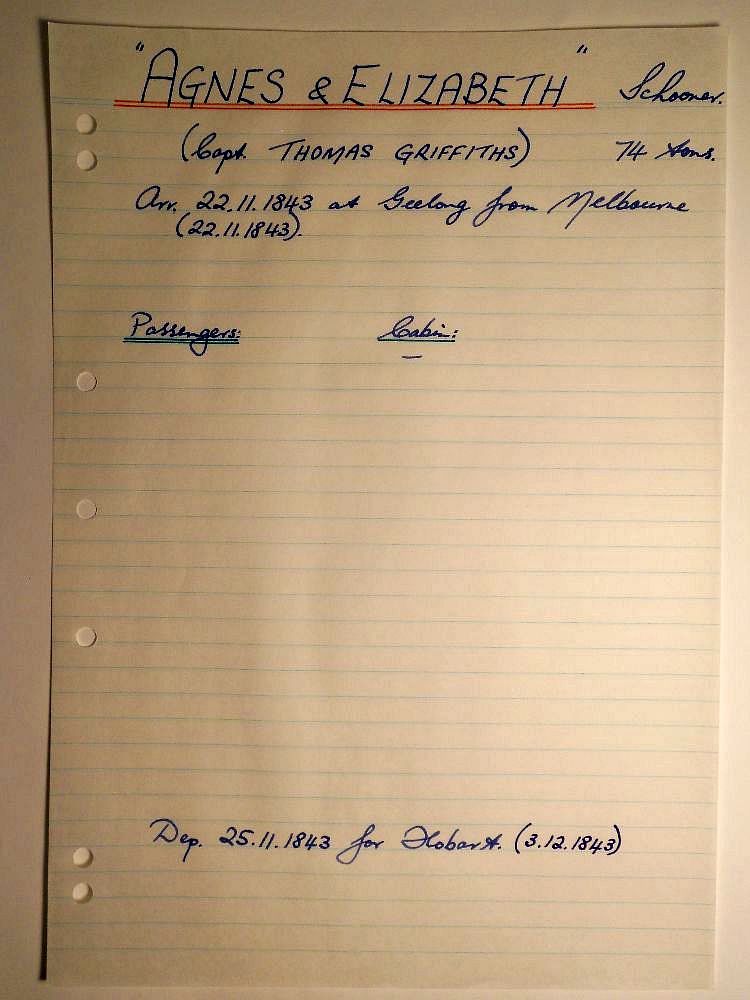 "AGNES & ELIZABETH" Schooner.
(Capt. THOMAS GRIFFITHS) 74 tons.
Arr. 22.11.1843 at Geelong from Melbourne
(22.11.1843).
Passengers: Cabin:
—
Dep. 25.11.1843 for Hobart. (3.12.1843)